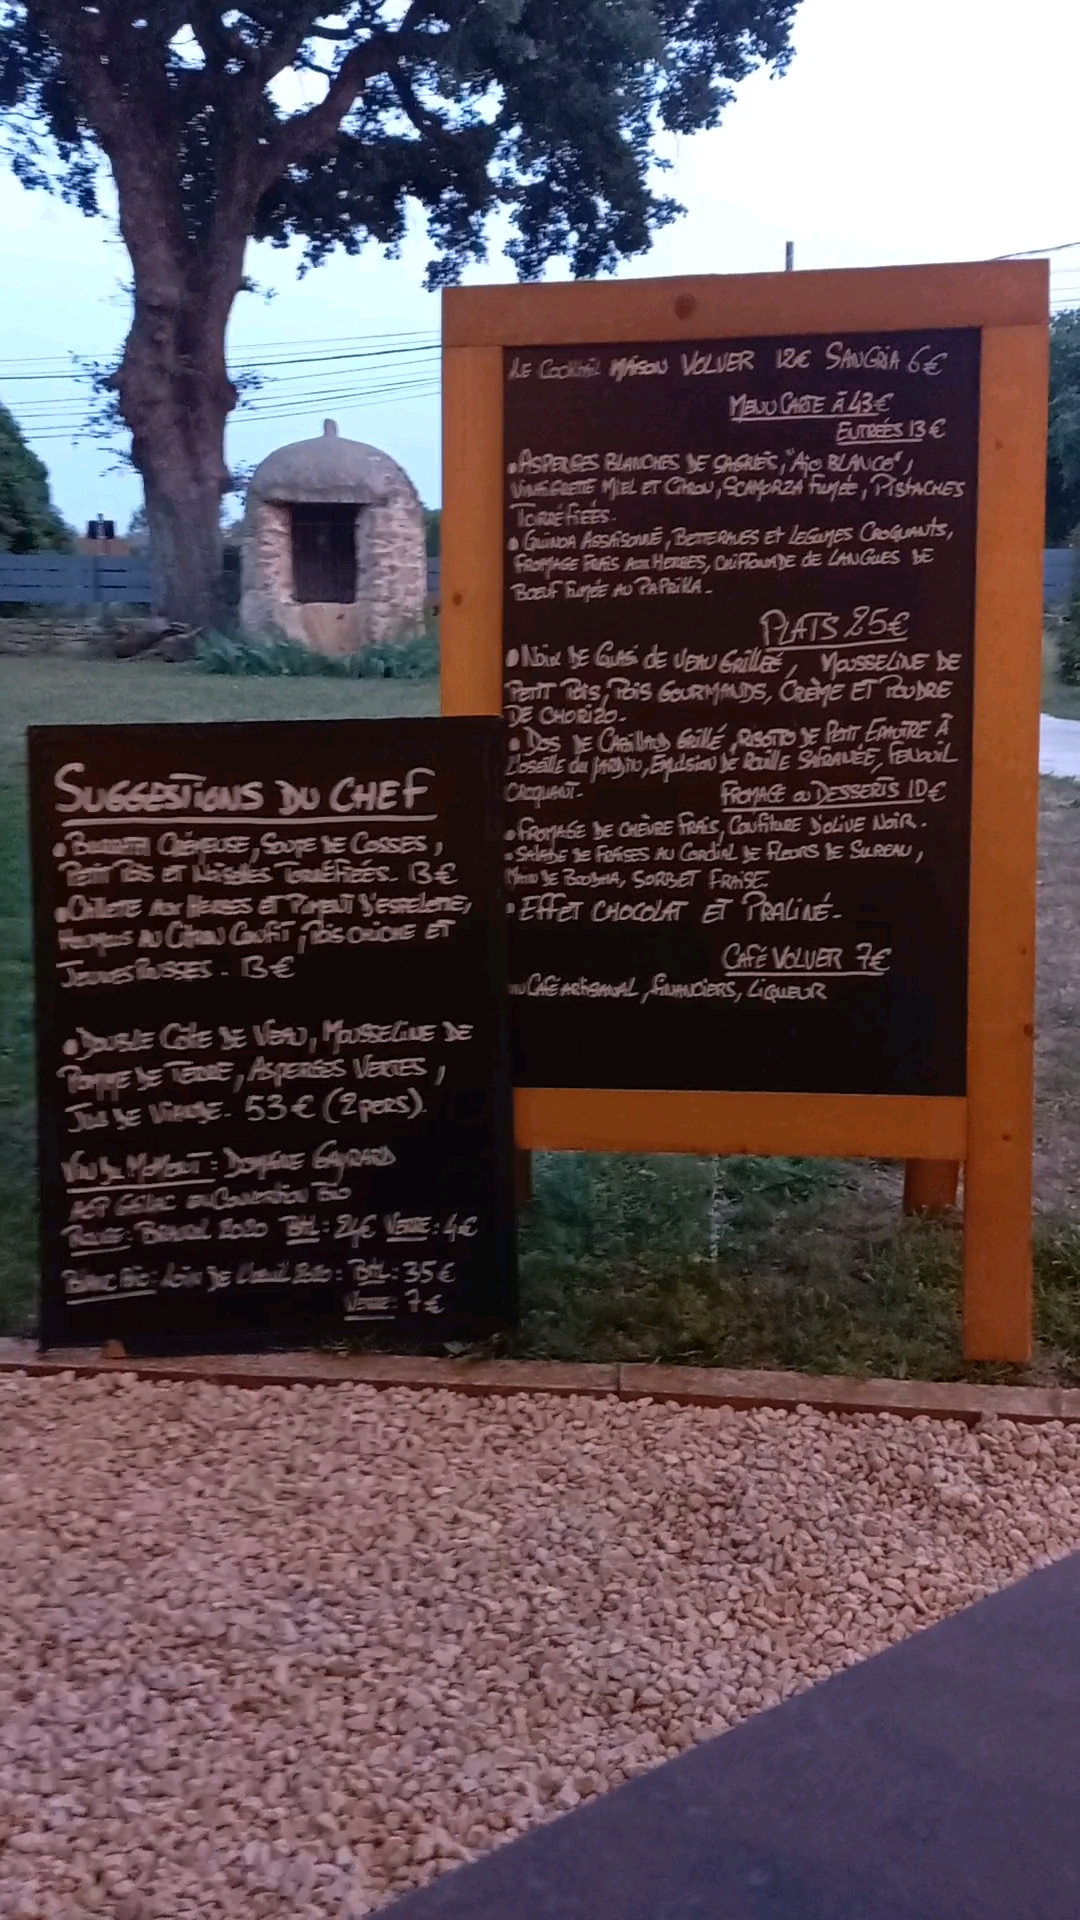 Le Cocktail Maison VOLVER 12€ SANGRIA 6€
MENU CARTE à 43€
ENTRÉES 13€
• ASPERGES BLANCHES DE "AJO BLANCO",
VINAIGRETTE MIEL ET CITRON, SCAMORZA FUMÉE, PISTACHES
TORRÉFIÉES.
• ASSAISONNÉ, BETTERAVES ET LÉGUMES CROQUANTS,
FROMAGE FRAIS AUX HERBES, CHIFFONNADE DE LANGUES DE
BOEUF FUMÉE AU PAPRIKA.
PLATS 25€
• NOIX DE QUASI DE VEAU GRILLÉE, MOUSSELINE DE
PETIT POIS, POIS GOURMANDS, CRÈME ET POUDRE
DE CHORIZO.
• DOS DE CABILLAUD GRILLÉ, RISOTTO DE PETIT EPAUTRE À
L'OSEILLE DU JARDIN, EMULSION DE ROUILLE SAFRANÉE, FENOUIL
CROQUANT.
FROMAGE OU DESSERTS 10€
• FROMAGE DE CHÈVRE FRAIS, CONFITURE D'OLIVE NOIR.
• SALADE DE FRAISES AU CORDIAL DE FLEURS DE SUREAU,
MAIN DE BOUDHA, SORBET FRAISE.
• EFFET CHOCOLAT ET PRALINÉ.
CAFÉ VOLVER 7€
UN CAFÉ ARTISANAL, FINANCIERS, LIQUEUR
SUGGESTIONS DU CHEF
• BURRATA CRÉMEUSE, SOUPE DE COSSES,
PETIT POIS ET NOISETTES TORRÉFIÉES. 13€
• CAILLETTE AUX HERBES ET PIMENT D'ESPELETTE,
HOUMOUS AU CITRON CONFIT, POIS CHICHE ET
JEUNES POUSSES. 13€
• DOUBLE CÔTE DE VEAU, MOUSSELINE DE
POMME DE TERRE, ASPERGES VERTES,
JUS DE VIANDE. 53€ (2 pers).
VIN DU MOMENT : DOMAINE GAYRARD
AOP GAILLAC EN CONVERSION BIO
ROUGE : 2020 BTL : 24€ VERRE : 4€
BLANC BIO : LOIN DE L'OEIL 2020 : BTL : 35€
VERRE : 7€